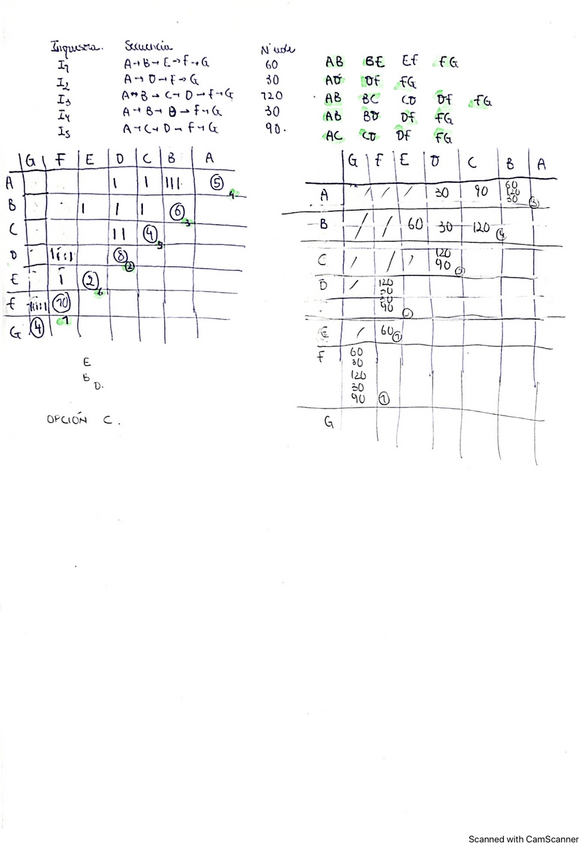 Impresora. Secuencia Nº uds
I1 A→B→E→F→G 60 AB BE Ef FG
I2 A→D→F→G 30 AD Df FG
I3 A→B→C→D→F→G 120 AB BC CD Df FG
I4 A→B→D→F→G 30 Ab BD Df FG
I5 A→C→D→F→G 90. AC CD Df FG
G F E D C B A
A | | ||| 5
B | | | 6 3
C || 4 5
D 8 2
E | 2 6
F 10 1
G 4
E
B
D.
OPCIÓN C.
G F E D C B A
A / / / 30 90 60 120 30
B / / 60 30 120 4
C / / / 120 90
D / 120 30 30 90
E / 60
F 60 30 120 30 90 1
G
Scanned with CamScanner